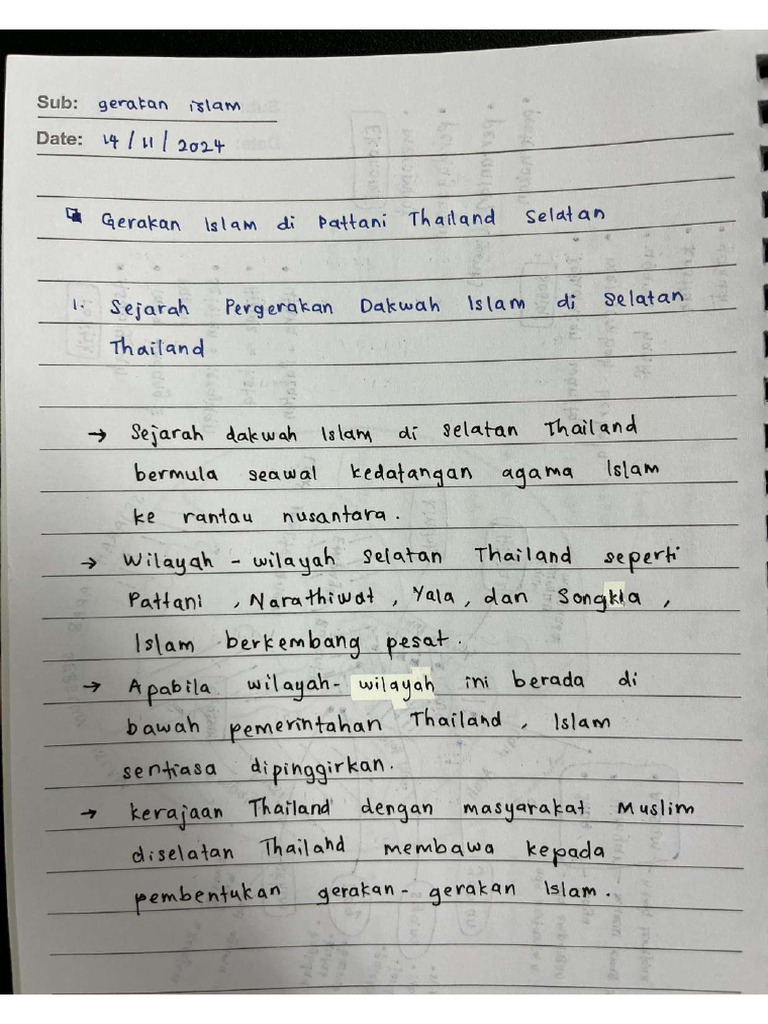 Sub: gerakan islam
Date: 14/11/2024
Gerakan Islam di Pattani Thailand Selatan
1. Sejarah Pergerakan Dakwah Islam di Selatan
Thailand
→ Sejarah dakwah Islam di selatan Thailand
bermula seawal kedatangan agama Islam
ke rantau nusantara.
→ Wilayah - wilayah selatan Thailand seperti
Pattani , Narathiwat , Yala , dan Songkla ,
Islam berkembang pesat.
→ Apabila wilayah- wilayah ini berada di
bawah pemerintahan Thailand , Islam
sentiasa dipinggirkan.
→ kerajaan Thailand dengan masyarakat Muslim
diselatan Thailand membawa kepada
pembentukan gerakan - gerakan Islam.